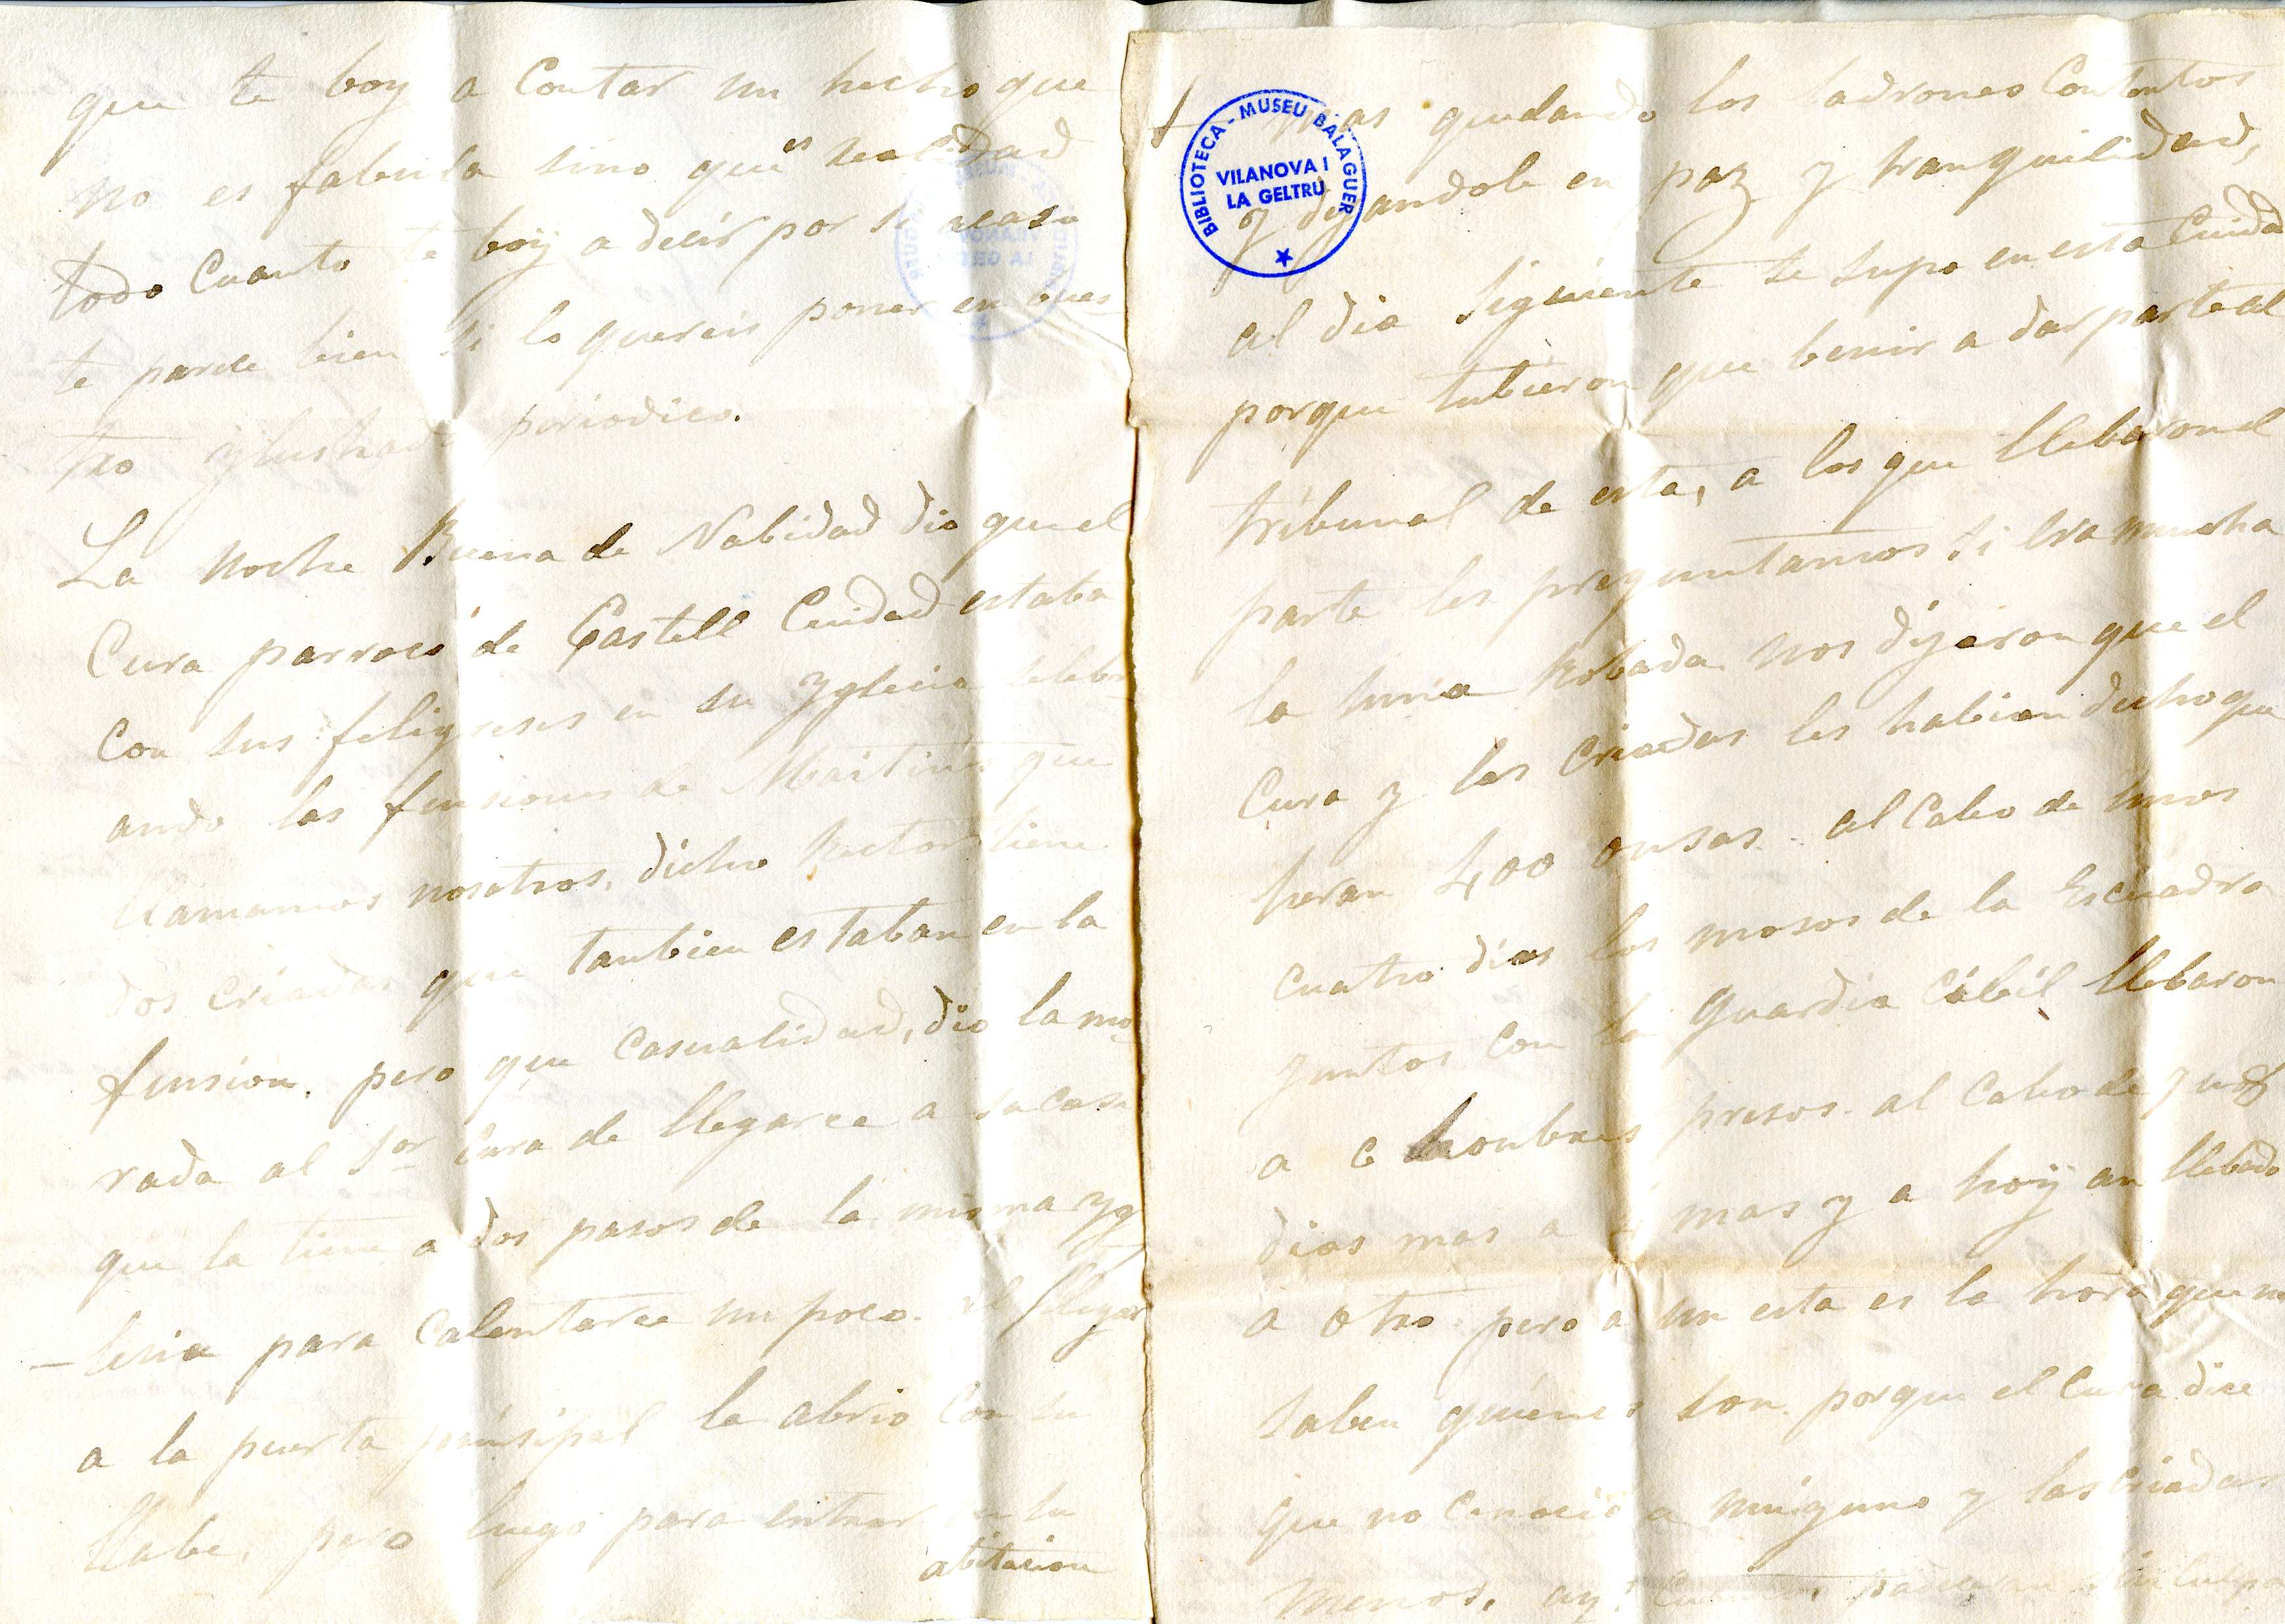 que te boy a Contar un hecho que
no es fabula sino que es realidad
todo Cuanto te boy a decir por si acaso
te parece bien si lo quereis poner en bues
tro ylustrado periodico.
La Noche Buena de Nabidad dio que el
Cura parroco de Castell Ciudad estaba
Con sus feligreses en su Yglecia selebr
ando las funsiones de Maitines que
llamamos nosotros, dicho Rector tiene
dos criadas que tanbien estaban en la
funsion. pero que Casualidad, dio la mo
rada al Sor Cura de llegarce a su casa
que la tiene a dos pasos de la misma yg
-lecia para Calentarce un poco. al llegar
a la puerta prinsipal la abrio Con su
llabe, pero luego para entrar en su
abitacion
BIBLIOTECA - MUSEU BALAGUER
VILANOVA I
LA GELTRÚ
quedando los ladrones Contentos
y dejandole en paz y tranquilidad,
al dia siguiente se supo en esta Ciudad
porque tubieron que benir a dar parte al
tribunal de esta, a los que llebaron el
parte les preguntamos si era mucha
la suma Robada. nos dijeron que el
Cura y las Criadas les habian dicho que
heran 400 onsas. al Cabo de unos
cuatro dias los mosos de la Escuadra
juntos con la Guardia Cibil llebaron
a 6 honbres presos. al Cabo de
dias mas a 4 mas y a hoy an llebado
a otro pero a un esta es la hora que no
saben quienes son. porque el Cura dice
que no Conocio a ninguno y las Criadas
menos. ay! Cuantos padecen sin culpa